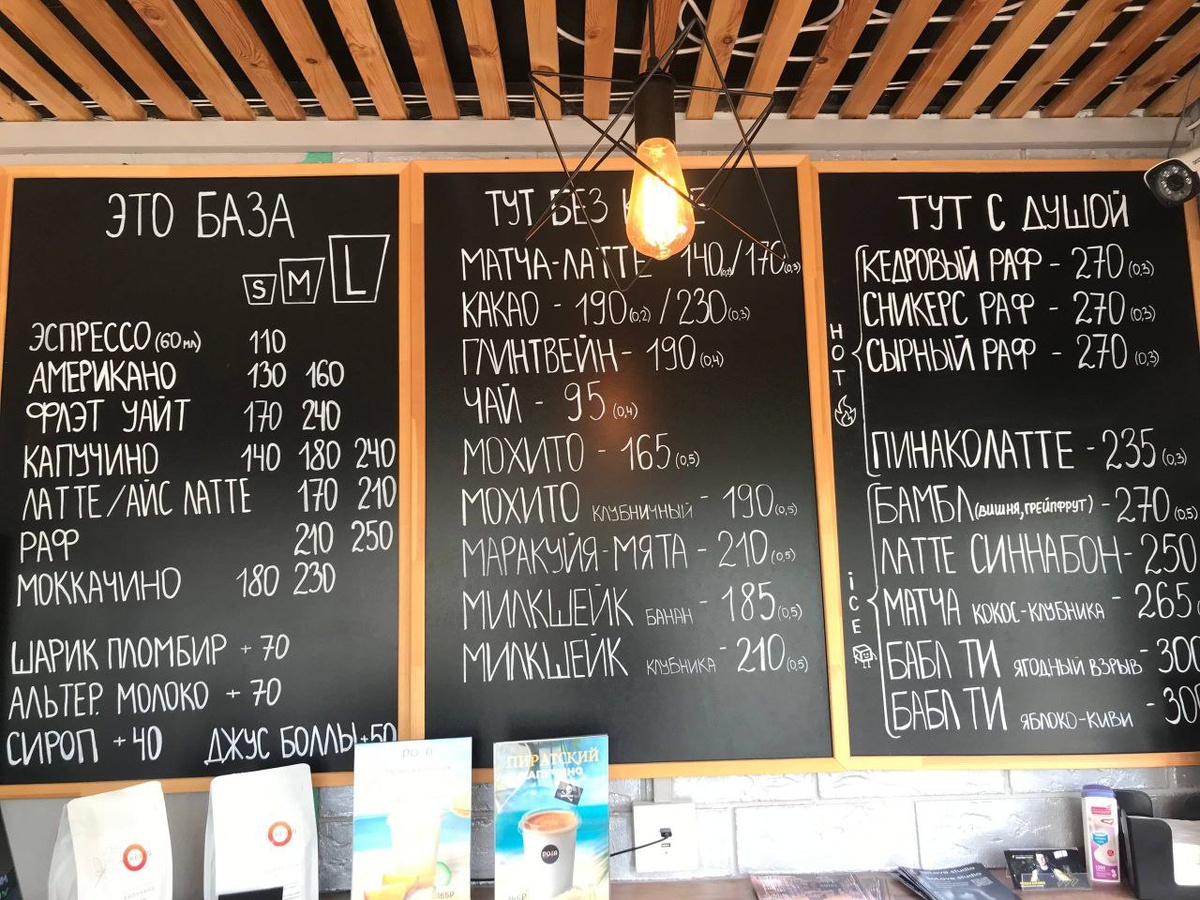 ЭТО БАЗА
S M L
ЭСПРЕССО (60 мл) 110
АМЕРИКАНО 130 160
ФЛЭТ УАЙТ 170 240
КАПУЧИНО 140 180 240
ЛАТТЕ/АЙС ЛАТТЕ 170 210
РАФ 210 250
МОККАЧИНО 180 230
ШАРИК ПЛОМБИР + 70
АЛЬТЕР. МОЛОКО + 70
СИРОП + 40 ДЖУС БОЛЛЫ +50
ТУТ БЕЗ
МАТЧА-ЛАТТЕ 140 /170(0,3)
КАКАО - 190(0,2) / 230(0,3)
ГЛИНТВЕЙН - 190(0,4)
ЧАЙ - 95(0,4)
МОХИТО - 165(0,5)
МОХИТО КЛУБНИЧНЫЙ - 190(0,5)
МАРАКУЙЯ-МЯТА - 210(0,5)
МИЛКШЕЙК БАНАН - 185(0,5)
МИЛКШЕЙК КЛУБНИКА - 210(0,5)
ТУТ С ДУШОЙ
HOT
КЕДРОВЫЙ РАФ - 270(0,3)
СНИКЕРС РАФ - 270(0,3)
СЫРНЫЙ РАФ - 270(0,3)
ПИНАКОЛАТТЕ - 235(0,3)
iCE
БАМБЛ (ВИШНЯ, ГРЕЙПФРУТ) - 270(0,5)
ЛАТТЕ СИННАБОН - 250
МАТЧА КОКОС-КЛУБНИКА - 265
БАБЛ ТИ ЯГОДНЫЙ ВЗРЫВ - 300
БАБЛ ТИ ЯБЛОКО-КИВИ - 300
ПИРАТСКИЙ
КАПУЧИНО